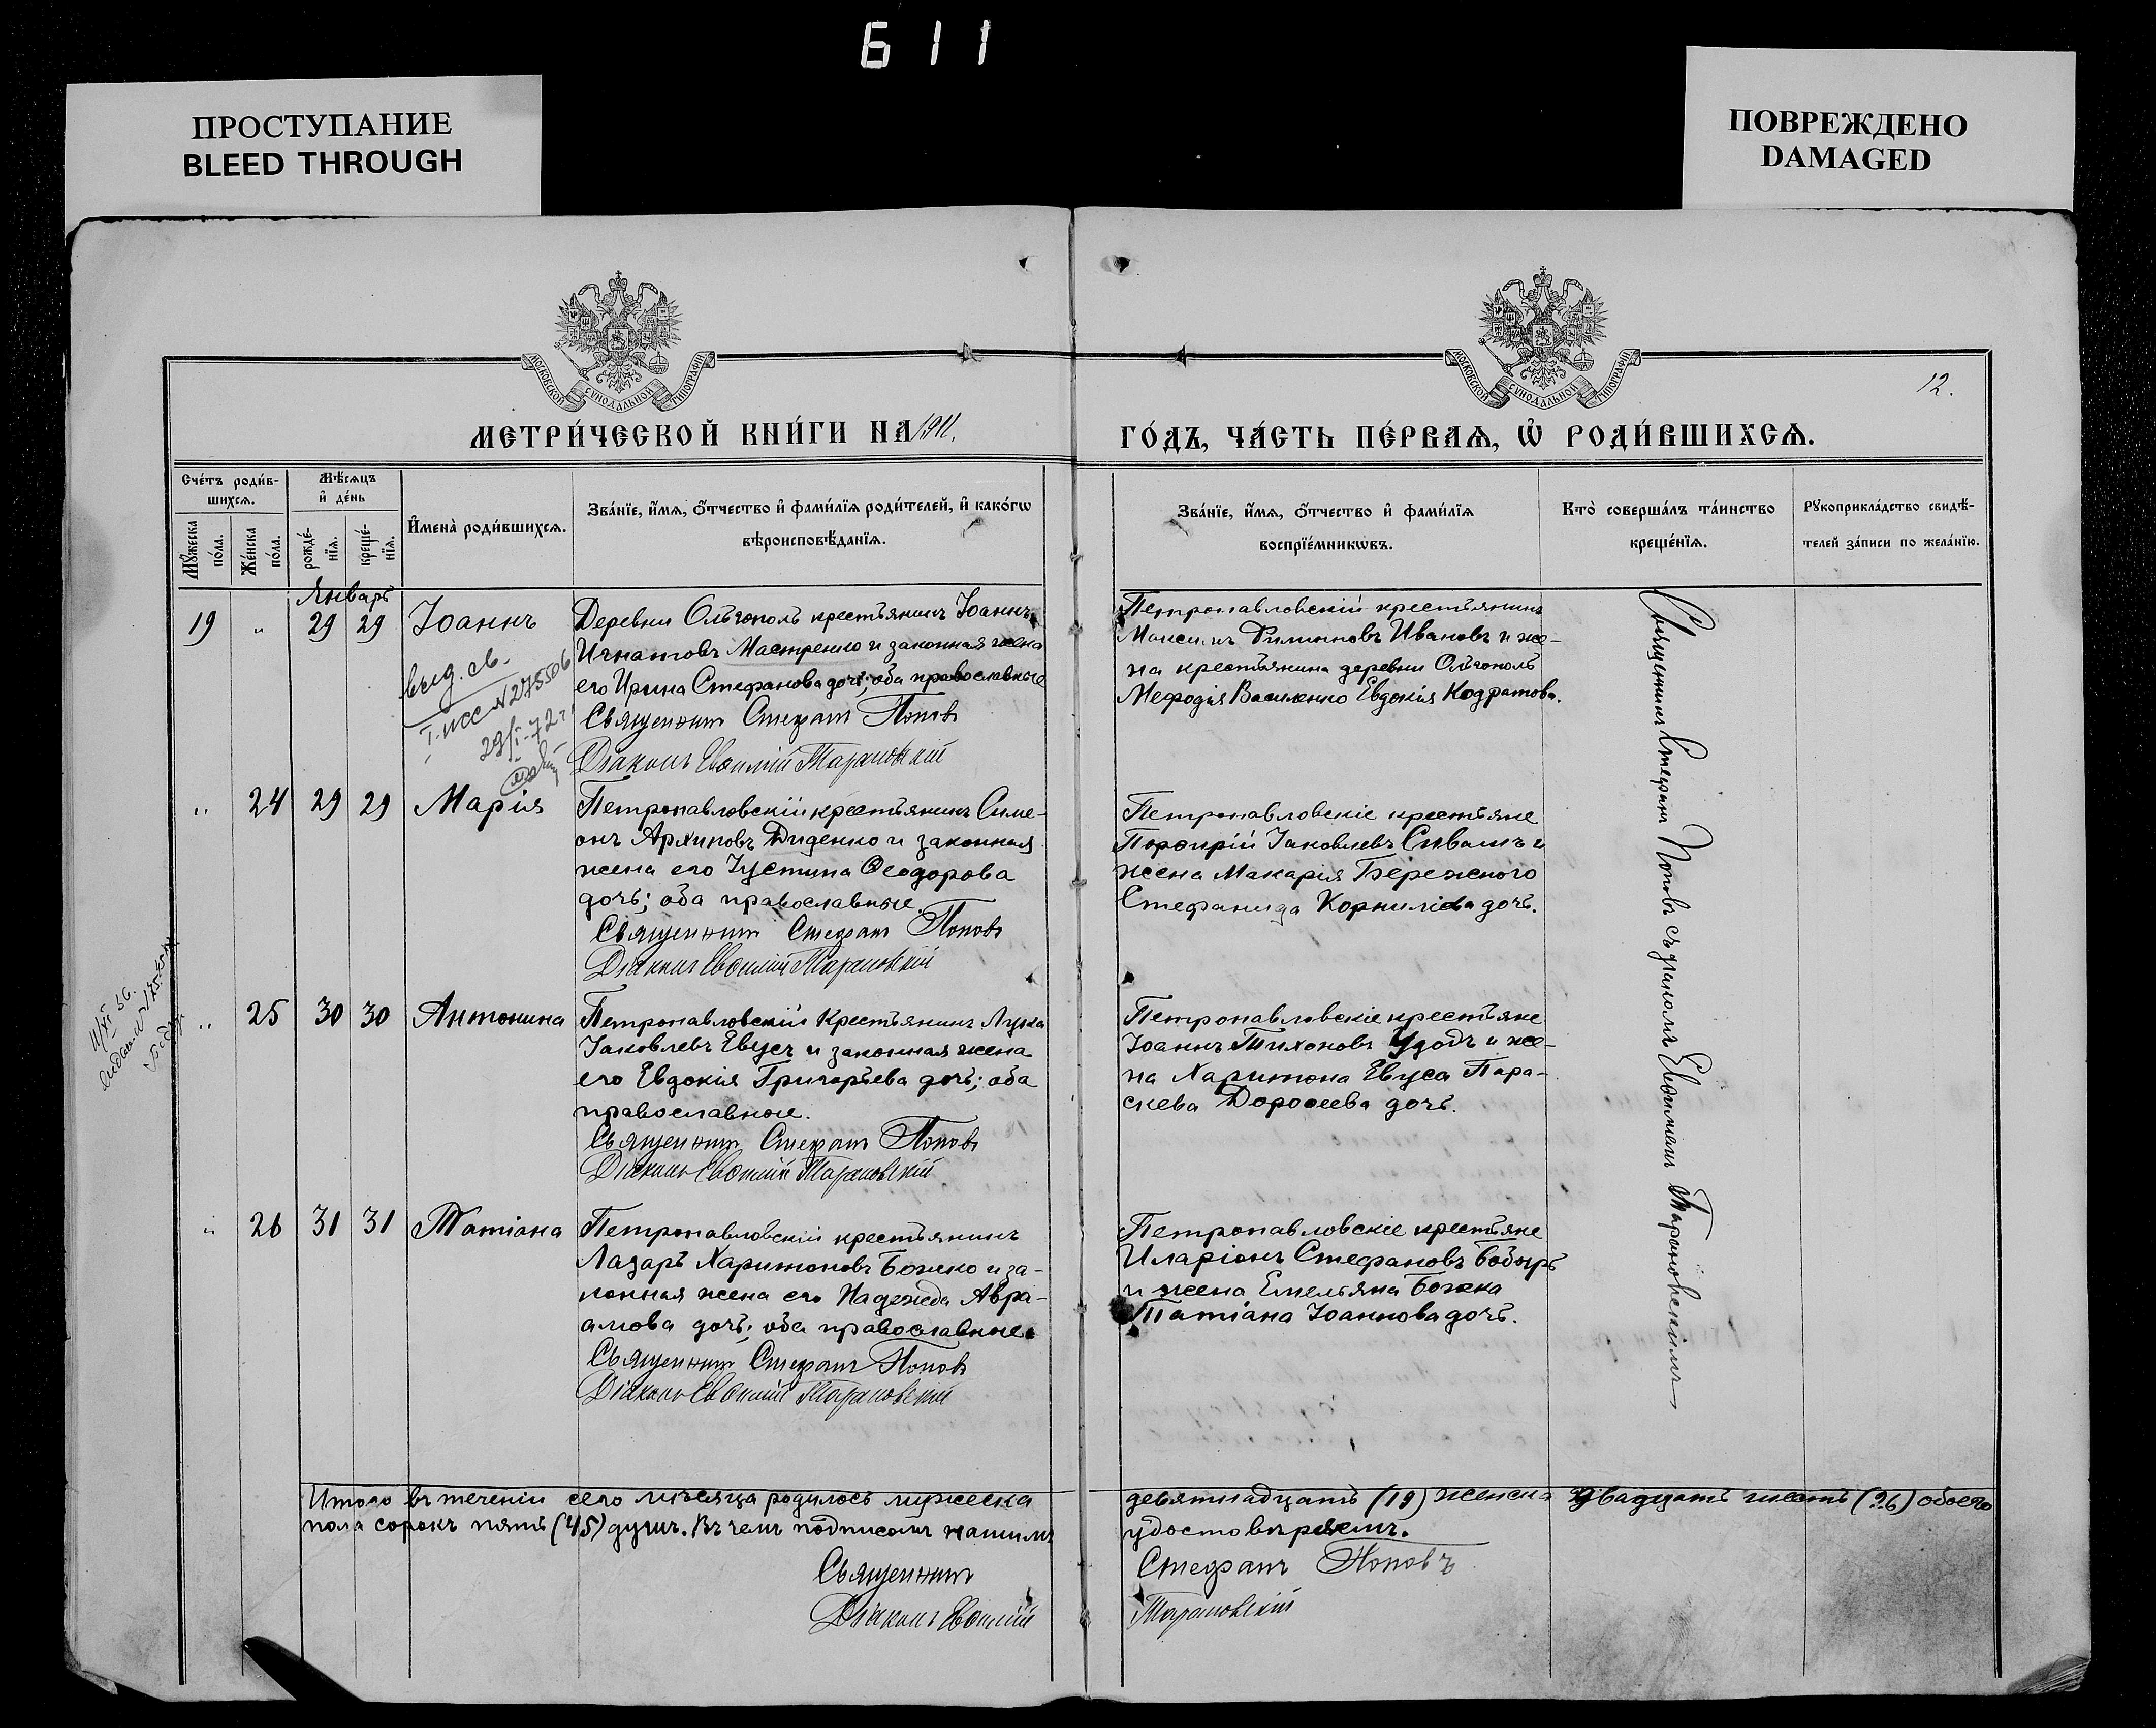 611
ПРОСТУПАНИЕ
BLEED THROUGH
ПОВРЕЖДЕНО
DAMAGED
МОСКОВСКОЙ СѴНОДАЛЬНОЙ ТИПОГРАФІИ
МОСКОВСКОЙ СѴНОДАЛЬНОЙ ТИПОГРАФІИ
12.
МЕТРИ́ЧЕСКОЙ КНИ́ГИ НА 1911.
ГО́ДЪ, ЧА́СТЬ ПЕ́РВАѦ, Ѽ РОДИ́ВШИХСѦ.
Сче́тъ роди́в-
шихсѧ.
Мꙋ́жеска
по́ла.
Же́нска
по́ла.
Мѣ́сѧцъ
и҆ де́нь
рожде́-
нїѧ.
креще́-
нїѧ.
И҆мена̀ роди́вшихсѧ.
Зва́нїе, и҆́мѧ, ѻ҆́тчество и҆ фами́лїѧ роди́телей, и҆ како́гѡ
вѣроисповѣ́данїѧ.
Зва́нїе, и҆́мѧ, ѻ҆́тчество и҆ фами́лїѧ
воспрїе́мникѡвъ.
Кто̀ соверша́лъ та́инство
креще́нїѧ.
Рꙋкоприкла́дство свидѣ́-
телей за́писи по жела́нїю.
Январь
19 " 29 29 Іоаннъ
Деревни Ольгополь крестьянинъ Іоаннъ
Игнатовъ Мастренко и законная жена
его Ирина Стефанова дочь; оба православные
Священникъ Стефанъ Поповъ
Діаконъ Евѳимій Тарановскій
Петропавловскій крестьянинъ
Филипповъ Ивановъ и же-
на крестьянина деревни Ольгополь
Мефодія Василенко Евдокія Кодратова.
выд. св.
N 275506
29/I-72 г.
" 24 29 29 Марія
Петропавловскій крестьянинъ Симе-
онъ Архиповъ Диденко и законная
жена его Іустина Ѳеодорова
дочь; оба православные.
Священникъ Стефанъ Поповъ
Діаконъ Евѳимій Тарановскій
Петропавловскіе крестьяне
Порфирій Іаковлевъ Сивашъ и
жена Макарія Бережного
Стефанида Корниліева дочь.
" 25 30 30 Антонина
Петропавловскій крестьянинъ Лука
Іаковлевъ Евусъ и законная жена
его Евдокія Григорьева дочь; оба
православные.
Священникъ Стефанъ Поповъ
Діаконъ Евѳимій Тарановскій
Петропавловскіе крестьяне
Іоаннъ Тихоновъ Удодъ и же-
на Харитона Евуса Пара-
скева Дороѳеева дочь.
" 26 31 31 Татіана
Петропавловскій крестьянинъ
Лазарь Харитоновъ Божко и за-
конная жена его Надежда Авра-
амова дочь; оба православные.
Священникъ Стефанъ Поповъ
Діаконъ Евѳимій Тарановскій
Петропавловскіе крестьяне
Иларіонъ Стефановъ Бобырь
и жена Емельяна Божка
Татіана Іоаннова дочь.
Священникъ Стефанъ Поповъ съ діакономъ Евѳиміемъ Тарановскимъ
Итого въ теченіи сего мѣсяца родилось мужеска девятнадцать (19) женска двадцать шесть (26) обоего
пола сорокъ пять (45) душъ. Въ чемъ подписомъ нашимъ удостовѣряемъ.
Священникъ Стефанъ Поповъ
Діаконъ Евѳимій Тарановскій